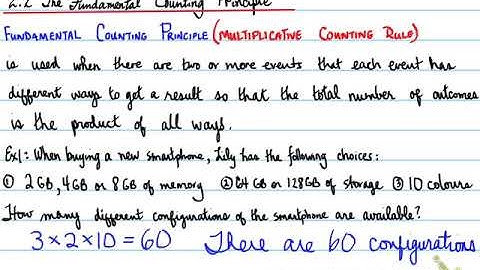 2.2 The Fundamental Counting Principle
FUNDAMENTAL COUNTING PRINCIPLE (MULTIPLICATIVE COUNTING RULE)
is used when there are two or more events that each event has
different ways to get a result so that the total number of outcomes
is the product of all ways.
Ex1: When buying a new smartphone, Lily has the following choices:
① 2GB, 4GB or 8GB of memory ② 64GB or 128GB of storage ③ 10 colours
How many different configurations of the smartphone are available?
3 × 2 × 10 = 60 There are 60 configurations